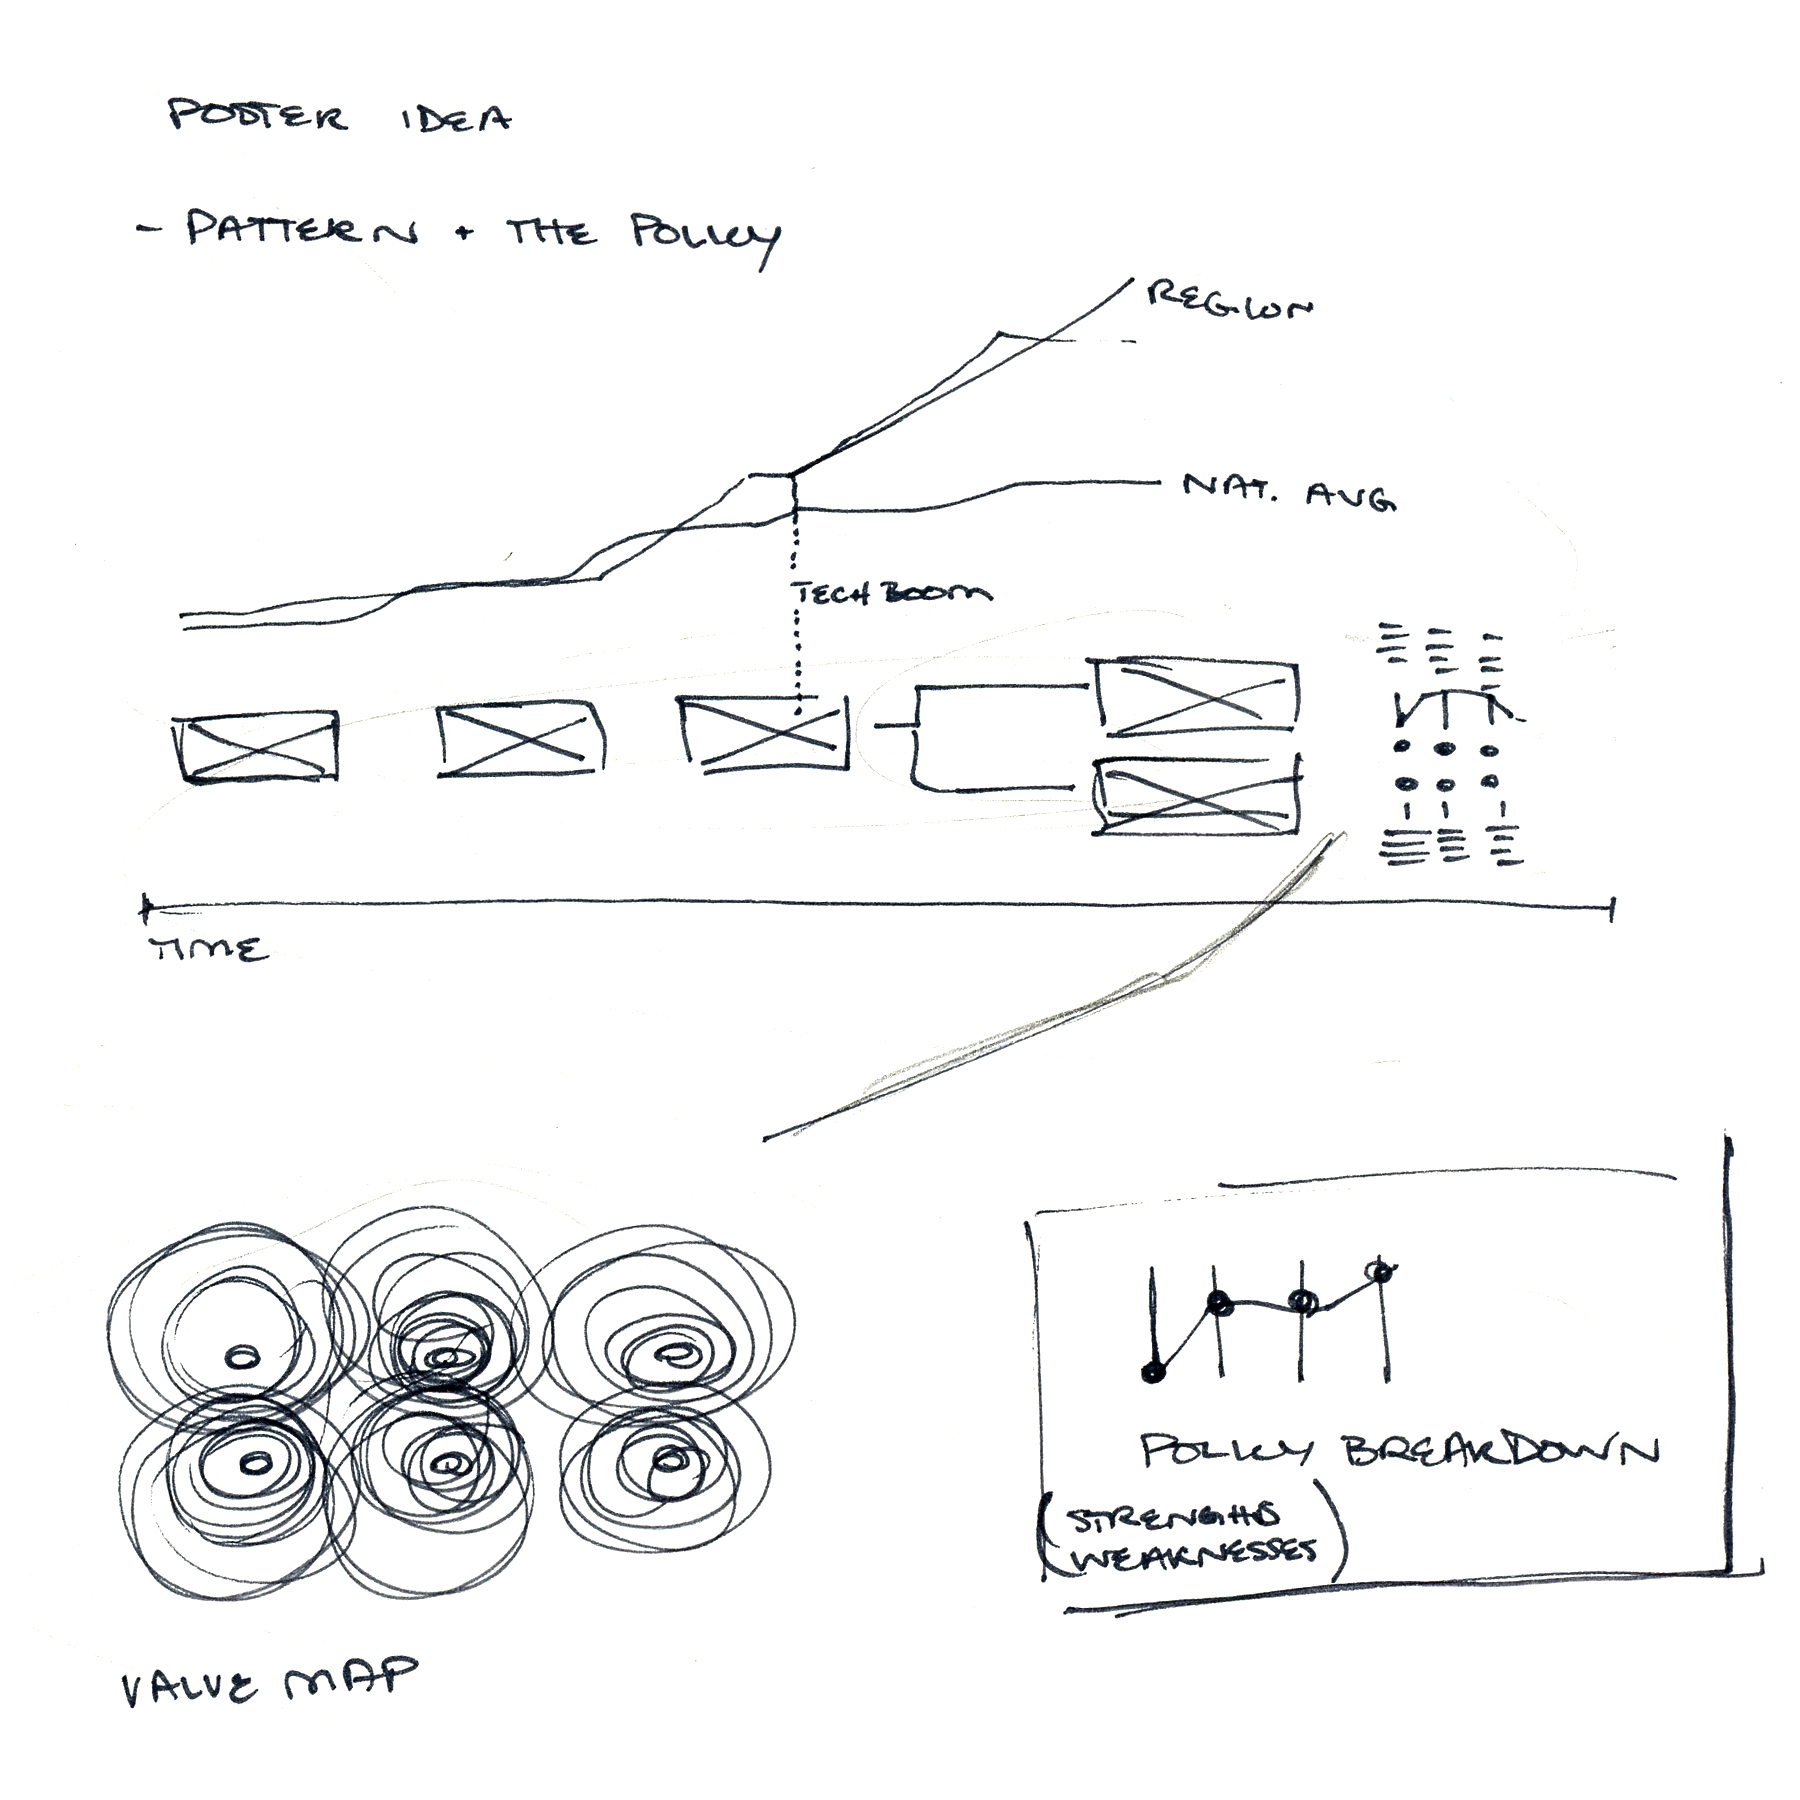 POSTER IDEA
- PATTERN + THE POLICY
REGION
NAT. AVG
TECH BOOM
TIME
POLICY BREAKDOWN
(STRENGHS
WEAKNESSES)
VALVE MAP